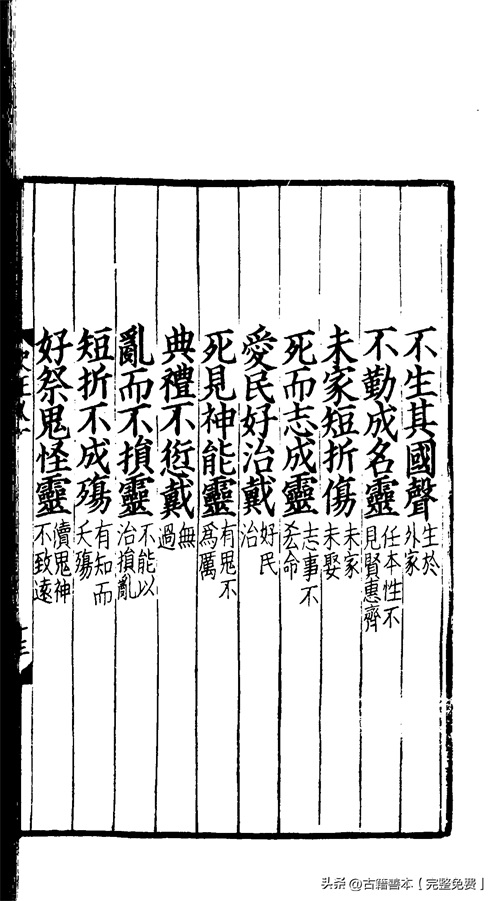 不生其國聲 生於外家
不勤成名靈 任本性不見賢惠齊
未家短折傷 未家未娶
死而志成靈 志事不命
愛民好治戴 好民治
死見神能靈 有鬼不為厲
典禮不愆戴 無過
亂而不損靈 不能以治損亂
短折不成殤 有知而夭殤
好祭鬼怪靈 瀆鬼神不致遠
十三
头条 @古籍善本【完整免费】